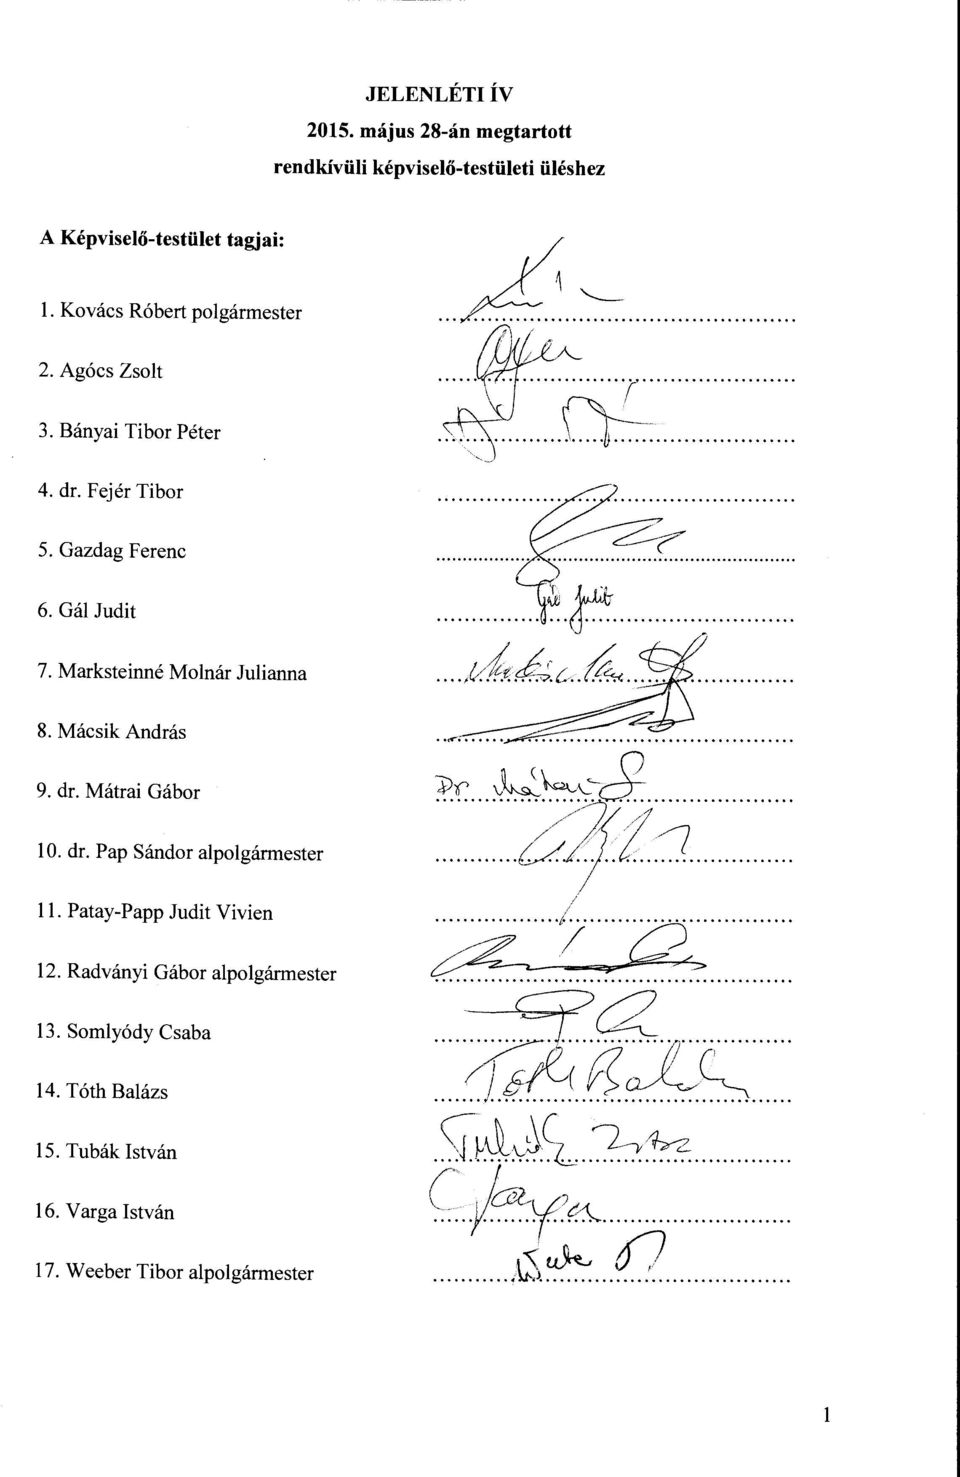 JELENLÉTI ÍV
2015. május 28-án megtartott
rendkívüli képviselő-testületi üléshez
A Képviselő-testület tagjai:
1. Kovács Róbert polgármester
2. Agócs Zsolt
3. Bányai Tibor Péter
4. dr. Fejér Tibor
5. Gazdag Ferenc
6. Gál Judit Gál Judit
7. Marksteinné Molnár Julianna
8. Mácsik András
9. dr. Mátrai Gábor Dr
10. dr. Pap Sándor alpolgármester
11. Patay-Papp Judit Vivien
12. Radványi Gábor alpolgármester
13. Somlyódy Csaba
14. Tóth Balázs Tóth Balázs
15. Tubák István Tubák István
16. Varga István Varga
17. Weeber Tibor alpolgármester
1